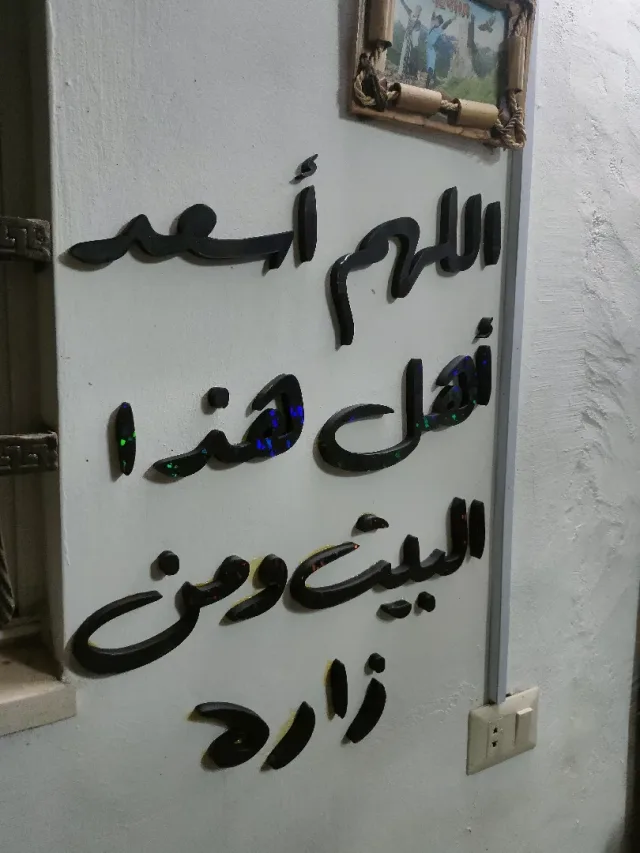 اللهم أسعد
أهل هذا
البيت ومن
زاره